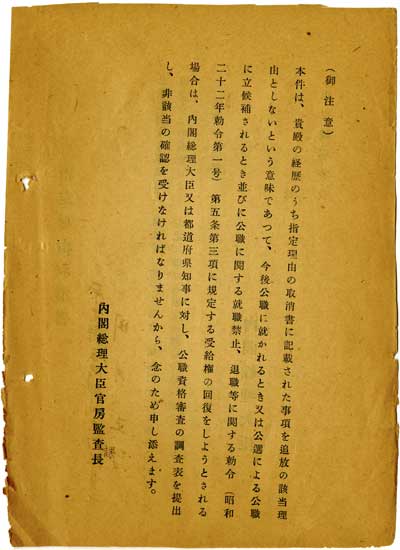 (御注意)
本件は、貴殿の経歴のうち指定理由の取消書に記載された事項を追放の該当理
由としないという意味であつて、今後公職に就かれるとき又は公選による公職
に立候補されるとき並びに公職に関する就職禁止、退職等に関する勅令(昭和
二十二年勅令第一号)第五条第三項に規定する受給権の回復をしようとされる
場合は、内閣総理大臣又は都道府県知事に対し、公職資格審査の調査表を提出
し、非該当の確認を受けなければなりませんから、念のため申し添えます。
内閣総理大臣官房監査長